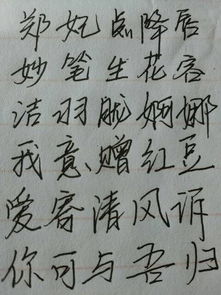 郑妃点降唇
妙笔生花容
洁羽胧婀娜
我意赠红豆
爱寄清风诉
你可与吾归